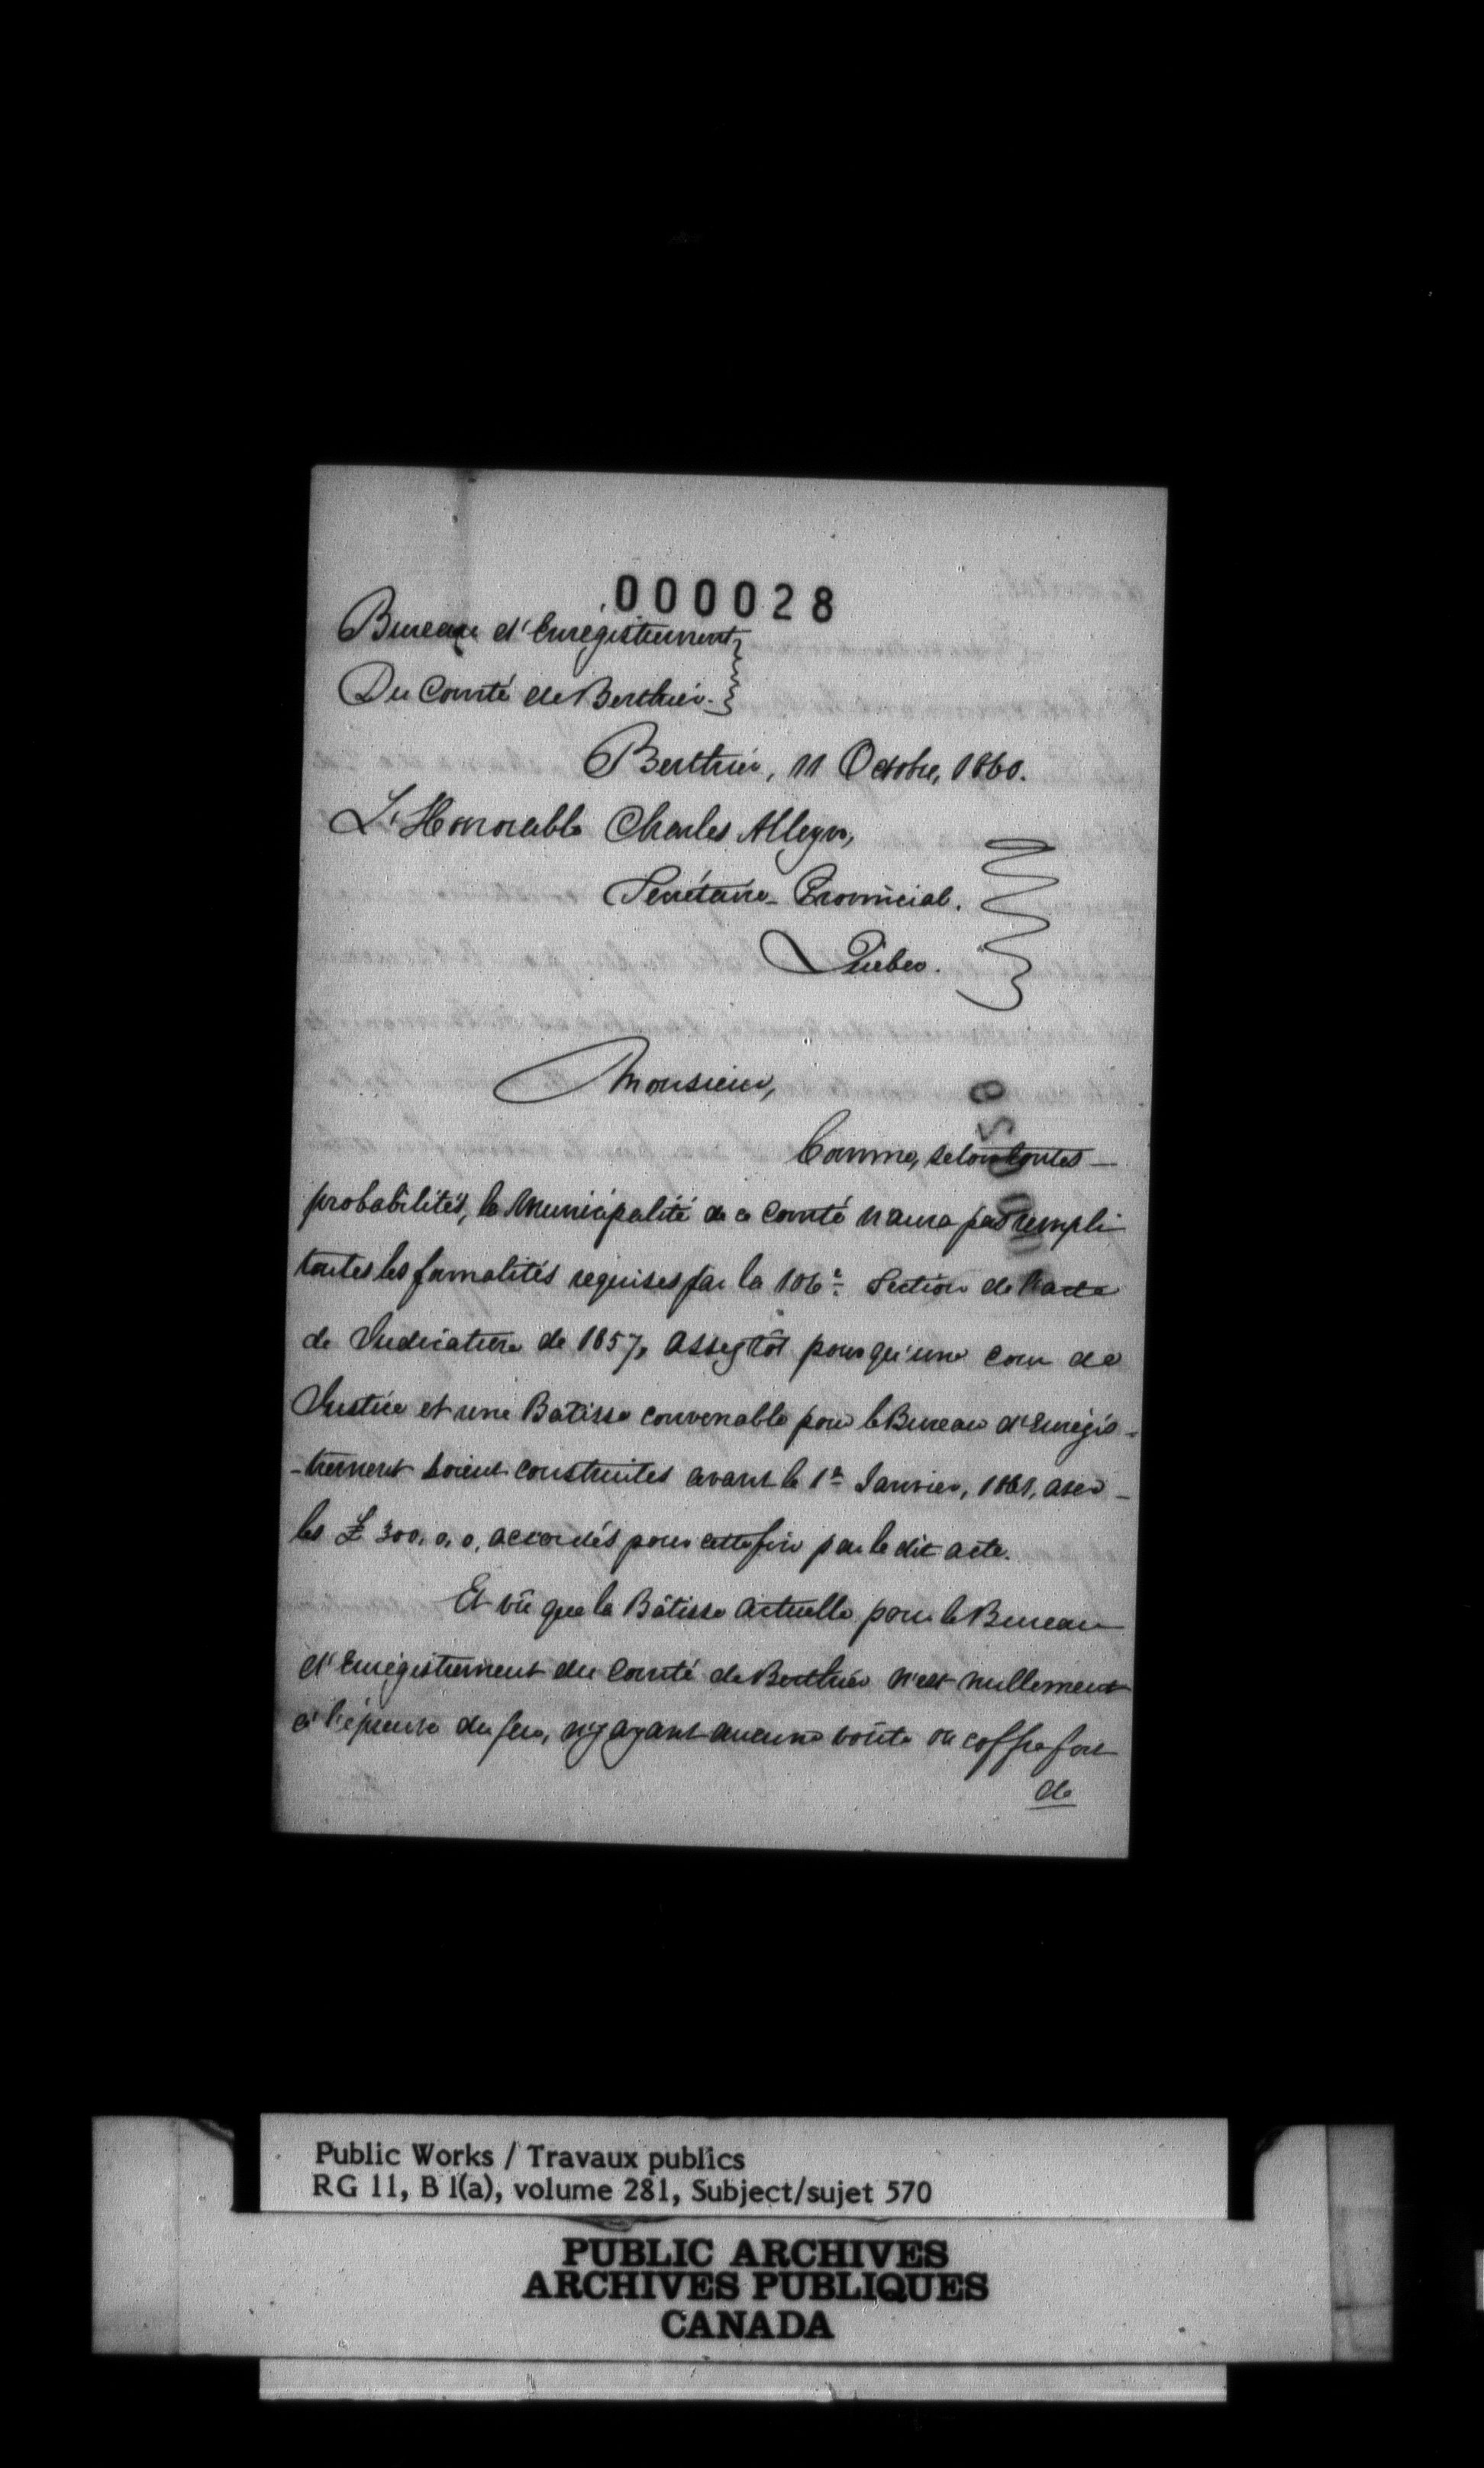 000028
Bureau d'Enrégistrement
Du Comté de Berthier.
Berthier, 11 Octobre, 1860.
L'Honorable Charles Alleyn,
Secrétaire-Provincial.
Québec.
Monsieur,
Comme, selon toutes
probabilités, la Municipalité de ce Comté n'aura pas rempli
toutes les formalités requises par la 106e Section de l'acte
de Judicature de 1857, assez tôt pour qu'une cour de
Justice et une Bâtisse convenable pour le Bureau d'Enrégis-
-trement soient construites avant le 1er Janvier, 1861, avec
les £300.0.0. accordés pour cette fin par le dit acte.
Et vû que la Bâtisse actuelle pour le Bureau
d'Enrégistrement du Comté de Berthier n'est nullement
à l'épreuve du feu, n'y ayant aucune voûte ou coffre fort
de
Public Works / Travaux publics
RG 11, B 1(a), volume 281, Subject/sujet 570
PUBLIC ARCHIVES
ARCHIVES PUBLIQUES
CANADA